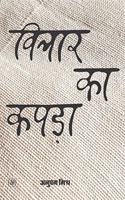 विचार
का
कपड़ा
अनुपम मिश्र